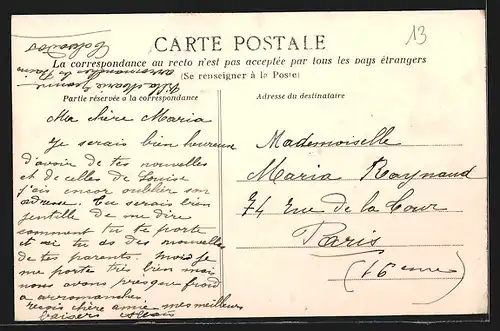 CARTE POSTALE
13
La correspondance au recto n'est pas acceptée par tous les pays étrangers
(Se renseigner à la Poste)
Partie réservée a la correspondance
Adresse du destinataire
Ma chère Maria
Je serais bien heureuse
d'avoir de tes nouvelles
et de celles de Louise
j'ais encor oublier son
adresse. Tu serais bien
gentille de me dire
comment tu te porte
et si tu as des nouvelles
de tes parents. Moi je
me porte très bien mais
nous avons presque froid
a arromanches
reçois chère amie mes meilleurs
baisers
Calvados
arromanches les Bains
Villa Marie
Mademoiselle
Maria Raynaud
74 rue de la Tour
Paris
(16 eme)